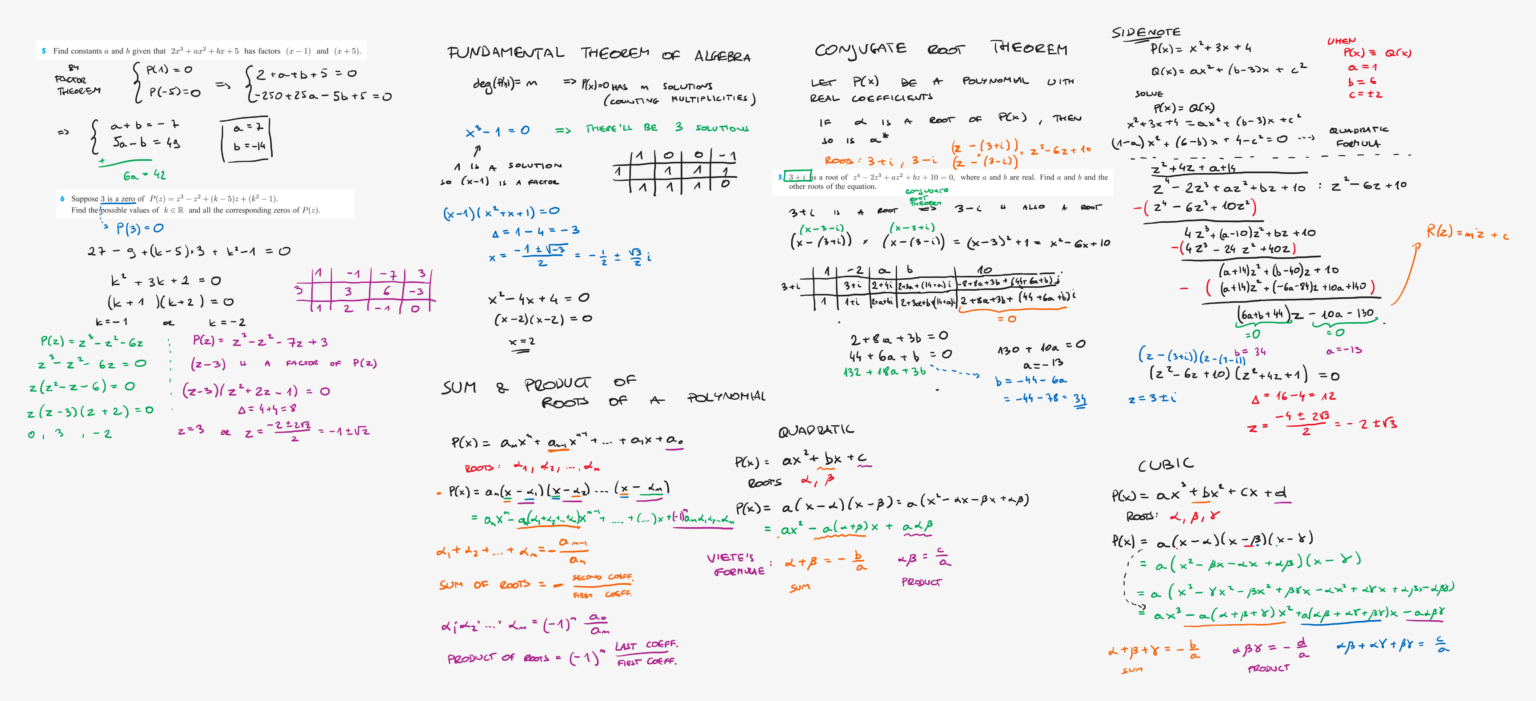 5 Find constants a and b given that 2x³ + ax² + bx + 5 has factors (x − 1) and (x + 5).
BY FACTOR THEOREM
{ P(1) = 0
P(-5) = 0
=> { 2+a+b+5 = 0
-250+25a-5b+5 = 0
=> { a+b = -7
5a-b = 49
+
6a = 42
a = 7
b = -14
6 Suppose 3 is a zero of P(z) = z³ − z² + (k − 5)z + (k² − 1).
Find the possible values of k ∈ ℝ and all the corresponding zeros of P(z).
P(3) = 0
27 - 9 + (k-5)·3 + k²-1 = 0
k² + 3k + 2 = 0
(k+1)(k+2) = 0
k = -1 or k = -2
1 -1 -7 3
3 3 6 -3
1 2 -1 0
P(z) = z³-z²-6z
z³-z²-6z = 0
z(z²-z-6) = 0
z(z-3)(z+2) = 0
0, 3, -2
P(z) = z³-z²-7z+3
(z-3) is A FACTOR OF P(z)
(z-3)(z²+2z-1) = 0
Δ = 4+4 = 8
z=3 or z = (-2±2√2)/2 = -1±√2
FUNDAMENTAL THEOREM OF ALGEBRA
deg(P(x)) = n => P(x)=0 HAS n SOLUTIONS
(COUNTING MULTIPLICITIES)
x³-1 = 0 => THERE'LL BE 3 SOLUTIONS
1 IS A SOLUTION
so (x-1) IS A FACTOR
1 0 0 -1
1 1 1
1 1 1 0
(x-1)(x²+x+1) = 0
Δ = 1-4 = -3
x = (-1±√-3)/2 = -1/2 ± √3/2 i
x²-4x+4 = 0
(x-2)(x-2) = 0
x = 2
SUM & PRODUCT OF
ROOTS OF A POLYNOMIAL
P(x) = aₙxⁿ + aₙ₋₁xⁿ⁻¹ + ... + a₁x + a₀
ROOTS: α₁, α₂, ..., αₙ
P(x) = aₙ(x-α₁)(x-α₂) ... (x-αₙ)
= aₙxⁿ - a(α₁+α₂+..+αₙ)xⁿ⁻¹ + .... + (...)x + (-1)ⁿaₙα₁α₂..αₙ
α₁+α₂+...+αₙ = - aₙ₋₁/aₙ
SUM OF ROOTS = - SECOND COEFF./FIRST COEFF.
α₁·α₂·...·αₙ = (-1)ⁿ a₀/aₙ
PRODUCT OF ROOTS = (-1)ⁿ LAST COEFF./FIRST COEFF.
CONJUGATE ROOT THEOREM
LET P(x) BE A POLYNOMIAL WITH
REAL COEFFICIENTS
IF α IS A ROOT OF P(x), THEN
SO IS α*
ROOTS: 3+i, 3-i
(z-(3+i))
(z-(3-i)) = z²-6z+10
3 + i is a root of z⁴ − 2z³ + az² + bz + 10 = 0, where a and b are real. Find a and b and the
other roots of the equation.
3+i IS A ROOT => 3-i is ALSO A ROOT
CONJUGATE ROOT THEOREM
(x-3-i) (x-3+i)
(x-(3+i)) * (x-(3-i)) = (x-3)²+1 = x²-6x+10
1 -2 a b 10
3+i 3+i 2+4i 2+3a+(14+a)i -8+8a+3b+(44+6a+b)i
1 1+i 2+a+4i 2+3a+b+(14+a)i 2+8a+3b+(44+6a+b)i
= 0
2+8a+3b = 0
44+6a+b = 0
132+18a+3b
130+10a = 0
a = -13
b = -44-6a
= -44-78 = 34
QUADRATIC
P(x) = ax²+bx+c
ROOTS α, β
P(x) = a(x-α)(x-β) = a(x²-αx-βx+αβ)
= ax² - a(α+β)x + aαβ
VIETE'S FORMULE :
α+β = - b/a
SUM
αβ = c/a
PRODUCT
SIDENOTE
P(x) = x²+3x+4
Q(x) = ax²+(b-3)x+c²
SOLVE
P(x) = Q(x)
x²+3x+4 = ax²+(b-3)x+c²
(1-a)x²+(6-b)x+4-c² = 0 ...> QUADRATIC FORMULA
WHEN
P(x) ≡ Q(x)
a = 1
b = 6
c = ±2
z²+4z+a+14
z⁴-2z³+az²+bz+10 : z²-6z+10
-(z⁴-6z³+10z²)
4z³+(a-10)z²+bz+10
-(4z³-24z²+40z)
(a+14)z²+(b-40)z+10
-((a+14)z²+(-6a-84)z+10a+140)
(6a+b+44)z - 10a-130
=0 =0
b = 34 a = -13
R(z) = mz+c
(z-(3+i))(z-(3-i))
(z²-6z+10)(z²+4z+1) = 0
z = 3±i
Δ = 16-4 = 12
z = (-4±2√3)/2 = -2±√3
CUBIC
P(x) = ax³+bx²+cx+d
ROOTS: α, β, γ
P(x) = a(x-α)(x-β)(x-γ)
= a(x²-βx-αx+αβ)(x-γ)
= a(x³-γx²-βx²+βγx-αx²+αγx+αβx-αβγ)
= ax³-a(α+β+γ)x²+a(αβ+αγ+βγ)x-aαβγ
α+β+γ = - b/a
SUM
αβγ = - d/a
PRODUCT
αβ+αγ+βγ = c/a